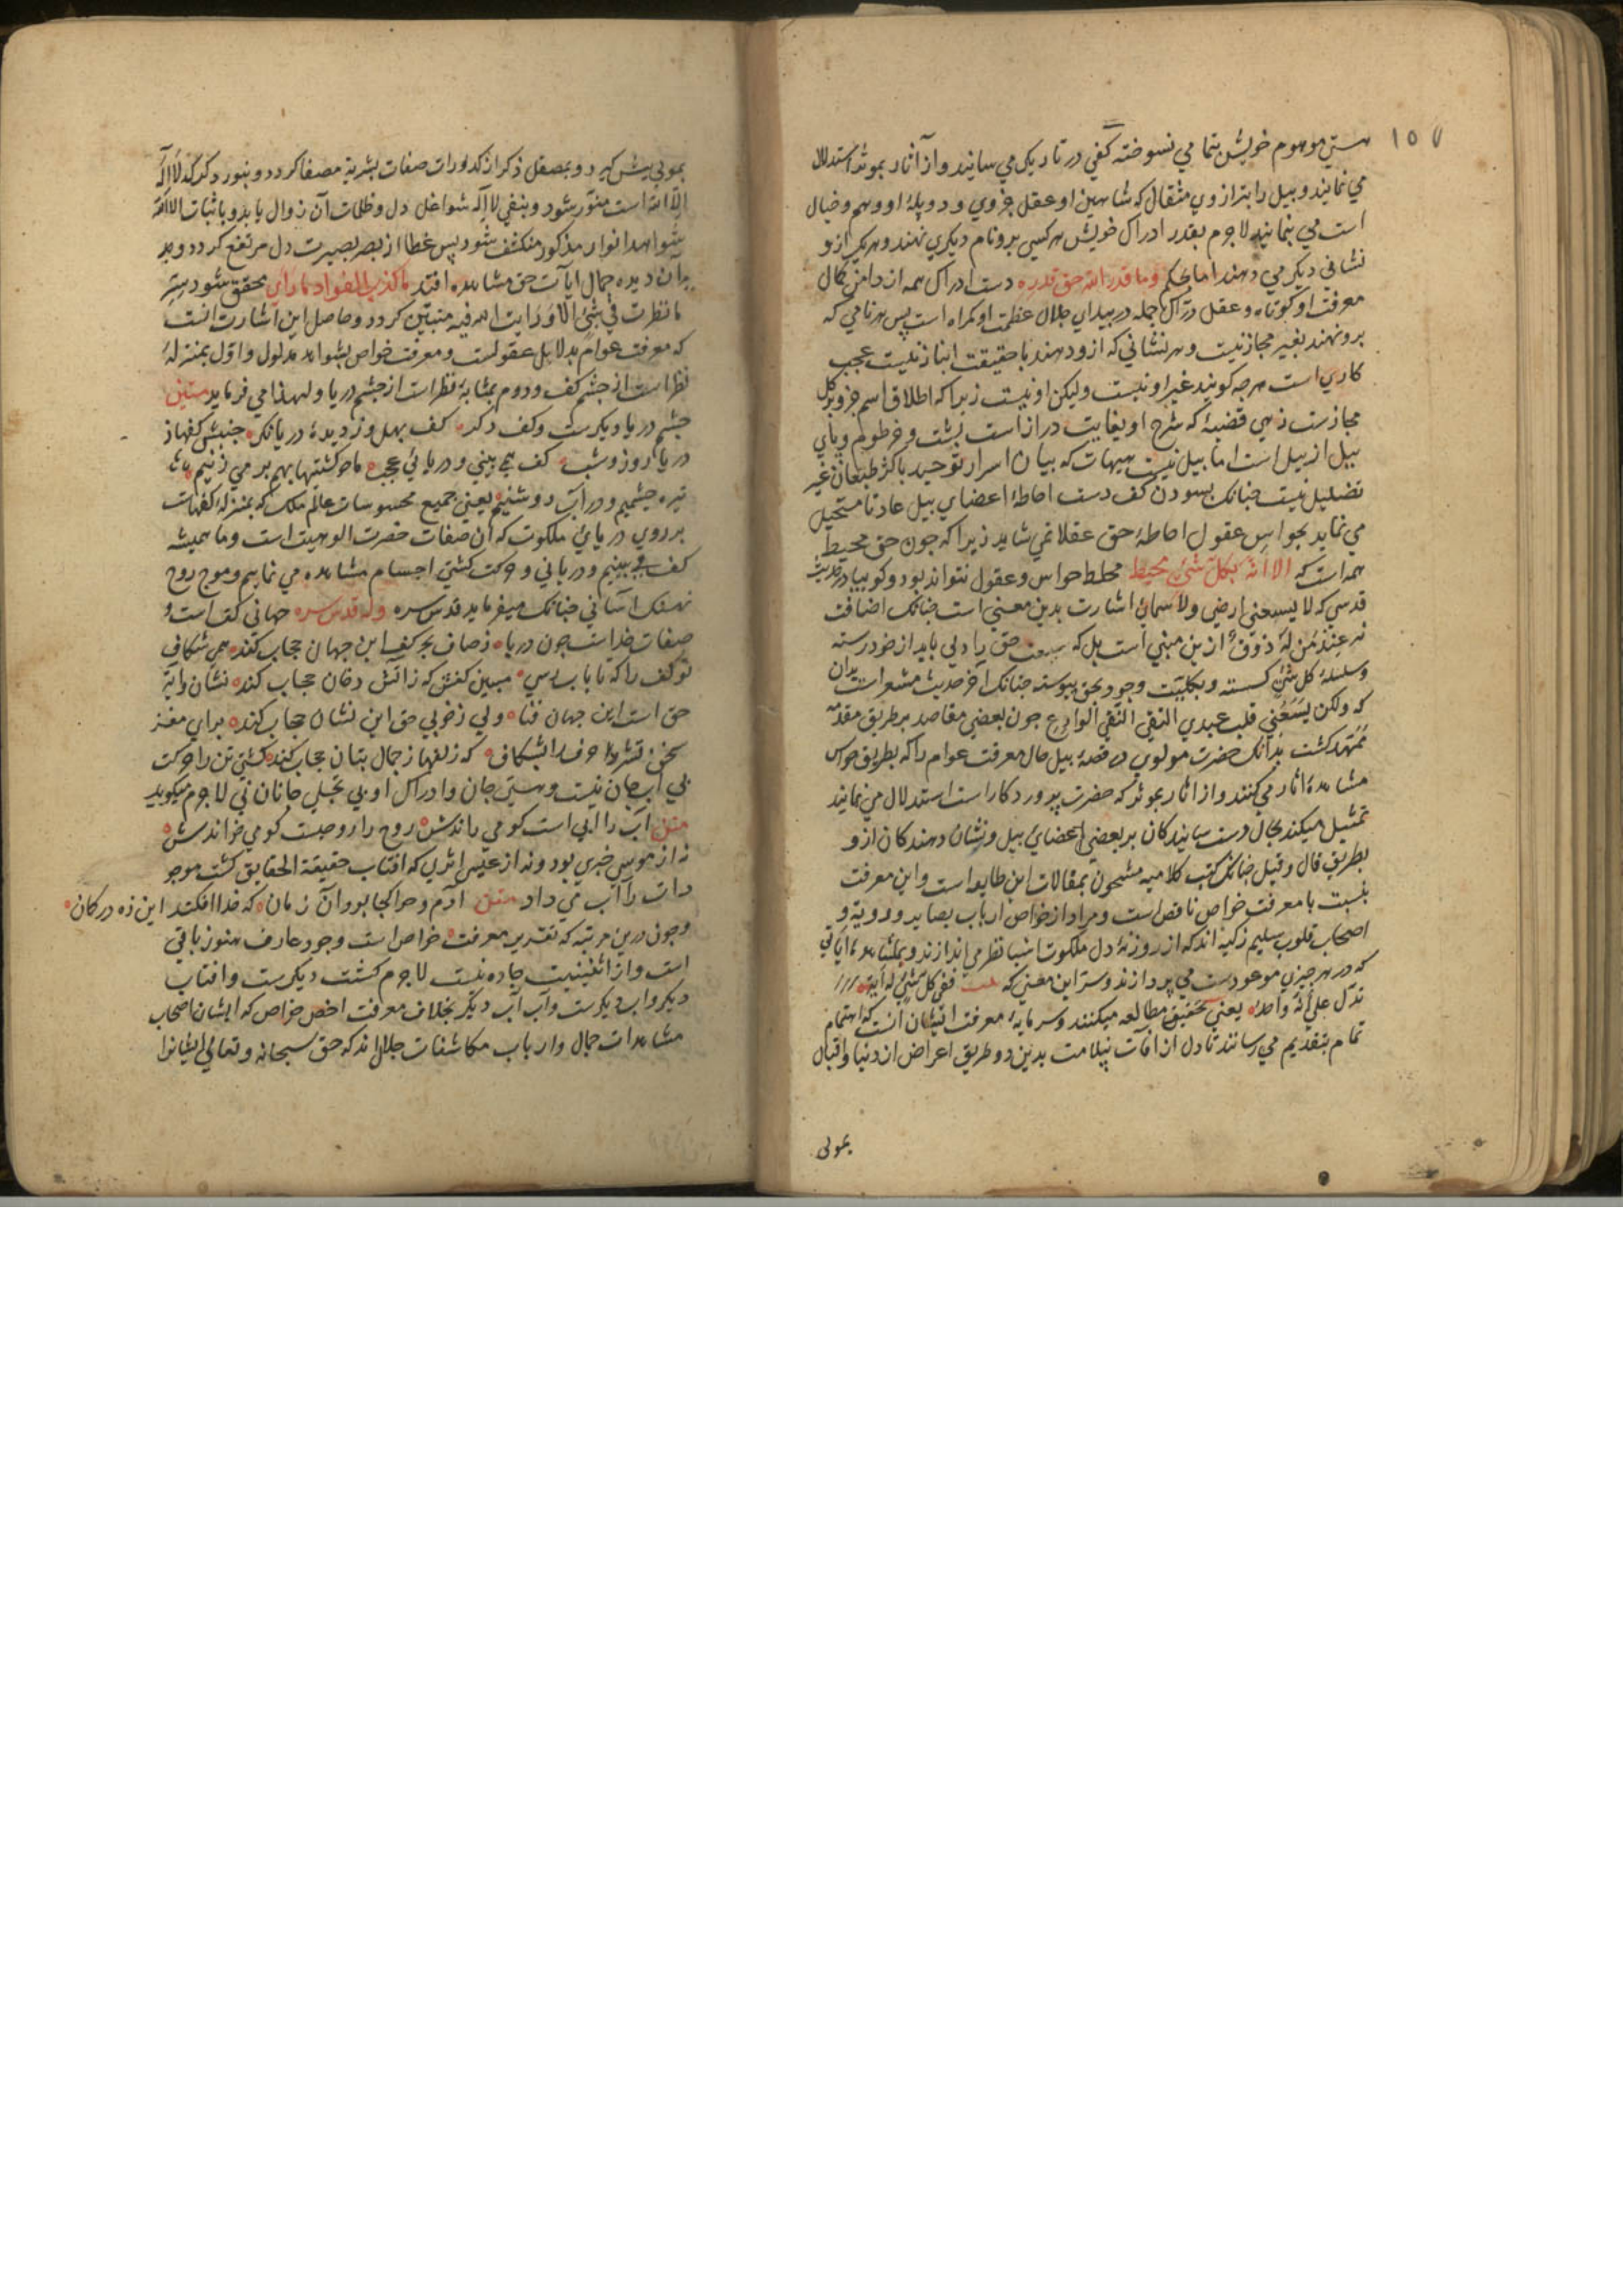 ١٥٧
هستی موهوم خویش بتمامی نسوخته کفی در تاریکی می سایند و از آثار بموثر استدلال
می نمایند و بیل را بترازوی مثقال که شاهین او عقل جزوی و دو پلهٔ او وهم و خیال
است می بنمایند لاجرم بقدر ادراک خویش هر کسی برو نام دیکری نهند و هر یک ازو
نشانی دیکر می دهند اما بحکم وما قدر الله حق قدره دست ادراک همه از دامن کمال
معرفت او کوتاه و عقل درّاک جمله در بیدای جلال عظمت او کمراه است پس هر نامی که
برو نهند بغیر مجاز نیست و هر نشانی که ازو دهند با حقیقت انباز نیست عجب
کاری است هرجه کویند غیر او نیست ولیکن او نیست زیرا که اطلاق اسم جزو بر کل
مجازست زهی قضیهٔ که شرح او بغایت دراز است بشت و خرطوم و پای
بیل از بیل است اما بیل نیست هیهات که بیان اسرار توحید با کژ طبعان غیر
تضلیل نیست جنانک بسودن کف دست احاطهٔ اعضای بیل عادتا مستحیل
می نماید بحواس عقول احاطهٔ حق عقلا نمی شاید زیرا که جون حق محیط
همه است که الا انه بکل شیء محیط محاط حواس و عقول نتواند بود و کوییا در حدیث
قدسی که لا یسعنی ارضی ولا سمائی اشارت بدین معنی است جنانک اضافت
نه عند من له ذوق ازین مبنی است بل که حق را دلی باید از خود رسته
و سلسلهٔ کل شیء کسسته و بکلیّت وجود بحق پیوسته جنانک آخر حدیث مشعر است بران
که ولکن یسعنی قلب عبدی التقی النقی الوادع جون بعضی مقاصد بر طریق مقدمه
ممهّد کشت بدانک حضرت مولوی در قصهٔ بیل حال معرفت عوام را که بطریق حواس
مشاهدهٔ اثار می کنند و از اثار بموثر که حضرت پرورد کار است استدلال می نمایند
تمثیل میکند بحال دست سایندکان بر بعضی اعضای بیل و نشان دهندکان ازو
بطریق قال و قیل جنانک کتب کلامیه مشحون بمقالات این طایفه است و این معرفت
بنسبت با معرفت خواص ناقص است و مراد از خواص ارباب بصایر و رویة و
اصحاب قلوب سلیم زکیه اند که از روزنهٔ دل ملکوت اشیا نظر می اندازند و بمشاهدهٔ آیاتی
که در هر جیزی موعود ست می پردازند و سرّ این معنی که ففی کل شیء له آیة
تدل علی أنه واحد یعنی تحقیق مطالعه میکنند و سرمایهٔ معرفت ایشان انست که اهتمام
تمام بتقدیم می رسانند تا دل از آفات بسلامت بدین دو طریق اعراض از دنیا و اقبال
بمولی
بمولی پیش کیرد و بمصقل ذکر از کدورات صفات بشریة مصفا کردد و بنور ذکر که لا اله
الا الله است منوّر شود و بنفی لا اله شواغل دل و ظلمات آن زوال یابد و باثبات الا الله
شواهد انوار مذکور منکشف شود پس غطا از بصر بصیرت دل مرتفع کردد و بعد
بدان دیده جمال آیات حق مشاهده افتد ما کذب الفواد ما رأی محقق شود سر
ما نظرت فی شیء الا ورایت الله فیه متبیّن کردد و حاصل این اشارت انست
که معرفت عوام بدلایل عقولست و معرفت خواص بشواهد مدلول و اوّل بمنزلهٔ
نظر است از جشم کف و دوم بمثابهٔ نظر است از جشم دریا و لهذا می فرماید مثنوی
جشم دریا دیکرست و کف دکر کف بهل وز دیدهٔ دریا نکر جنبش کفها ز
دریا روز و شب کف همی بینی و دریا نی عجب ما جو کشتیها بهم بر می زنیم
تیره جشمیم و در آب روشنیم یعنی جمیع محسوسات عالم ملک که بمنزلهٔ کفهاست
بر روی دریای ملکوت که آن صفات حضرت الوهیت است و ما همیشه
کف می بینیم و دریا نی و حرکت کشتی اجسام مشاهده می نماییم و موج روح
نهنک آسا نی جنانک میفرماید قدس سره وله قدس سره جهانی کف است و
صفات خداست جون دریا ز صاف بحر کف این جهان حجاب کند همی شکاف
تو کف را که تا باب رسی مبین کفش که ز آتش دخان حجاب کند نشان و آیة
حق است این جهان فنا ولی ز خوبی حق این نشان حجاب کند برای مغز
سخن قشر حرف را بشکاف که زلفها ز جمال بتان حجاب کند کشتی تن را حرکت
بی آب جان نیست و هستی جان و ادراک او بی تجلی جانان نی لاجرم میکوید
مثنوی آب را آبی است کو می راندش روح را روحیست کو می خواندش
نه از موسی خبری بود و نه از عیسی اثری که افتاب حقیقة الحقایق کشت موجو
دات را آب می داد مثنوی آدم و حوا کجا بود آن زمان که خدا افکند این زه در کمان
و جون درین مرتبه که تقدیر معرفت خواص است وجود عارف هنوز باقی
است و از اثنینیت جاره نیست لاجرم کشت دیکرست و افتاب
دیکر و آب دیکرست و آب آب دیکر بخلاف معرفت اخص خواص که ایشان اصحاب
مشاهدات جمال و ارباب مکاشفات جلال اند که حق سبحانه و تعالی ایشانرا